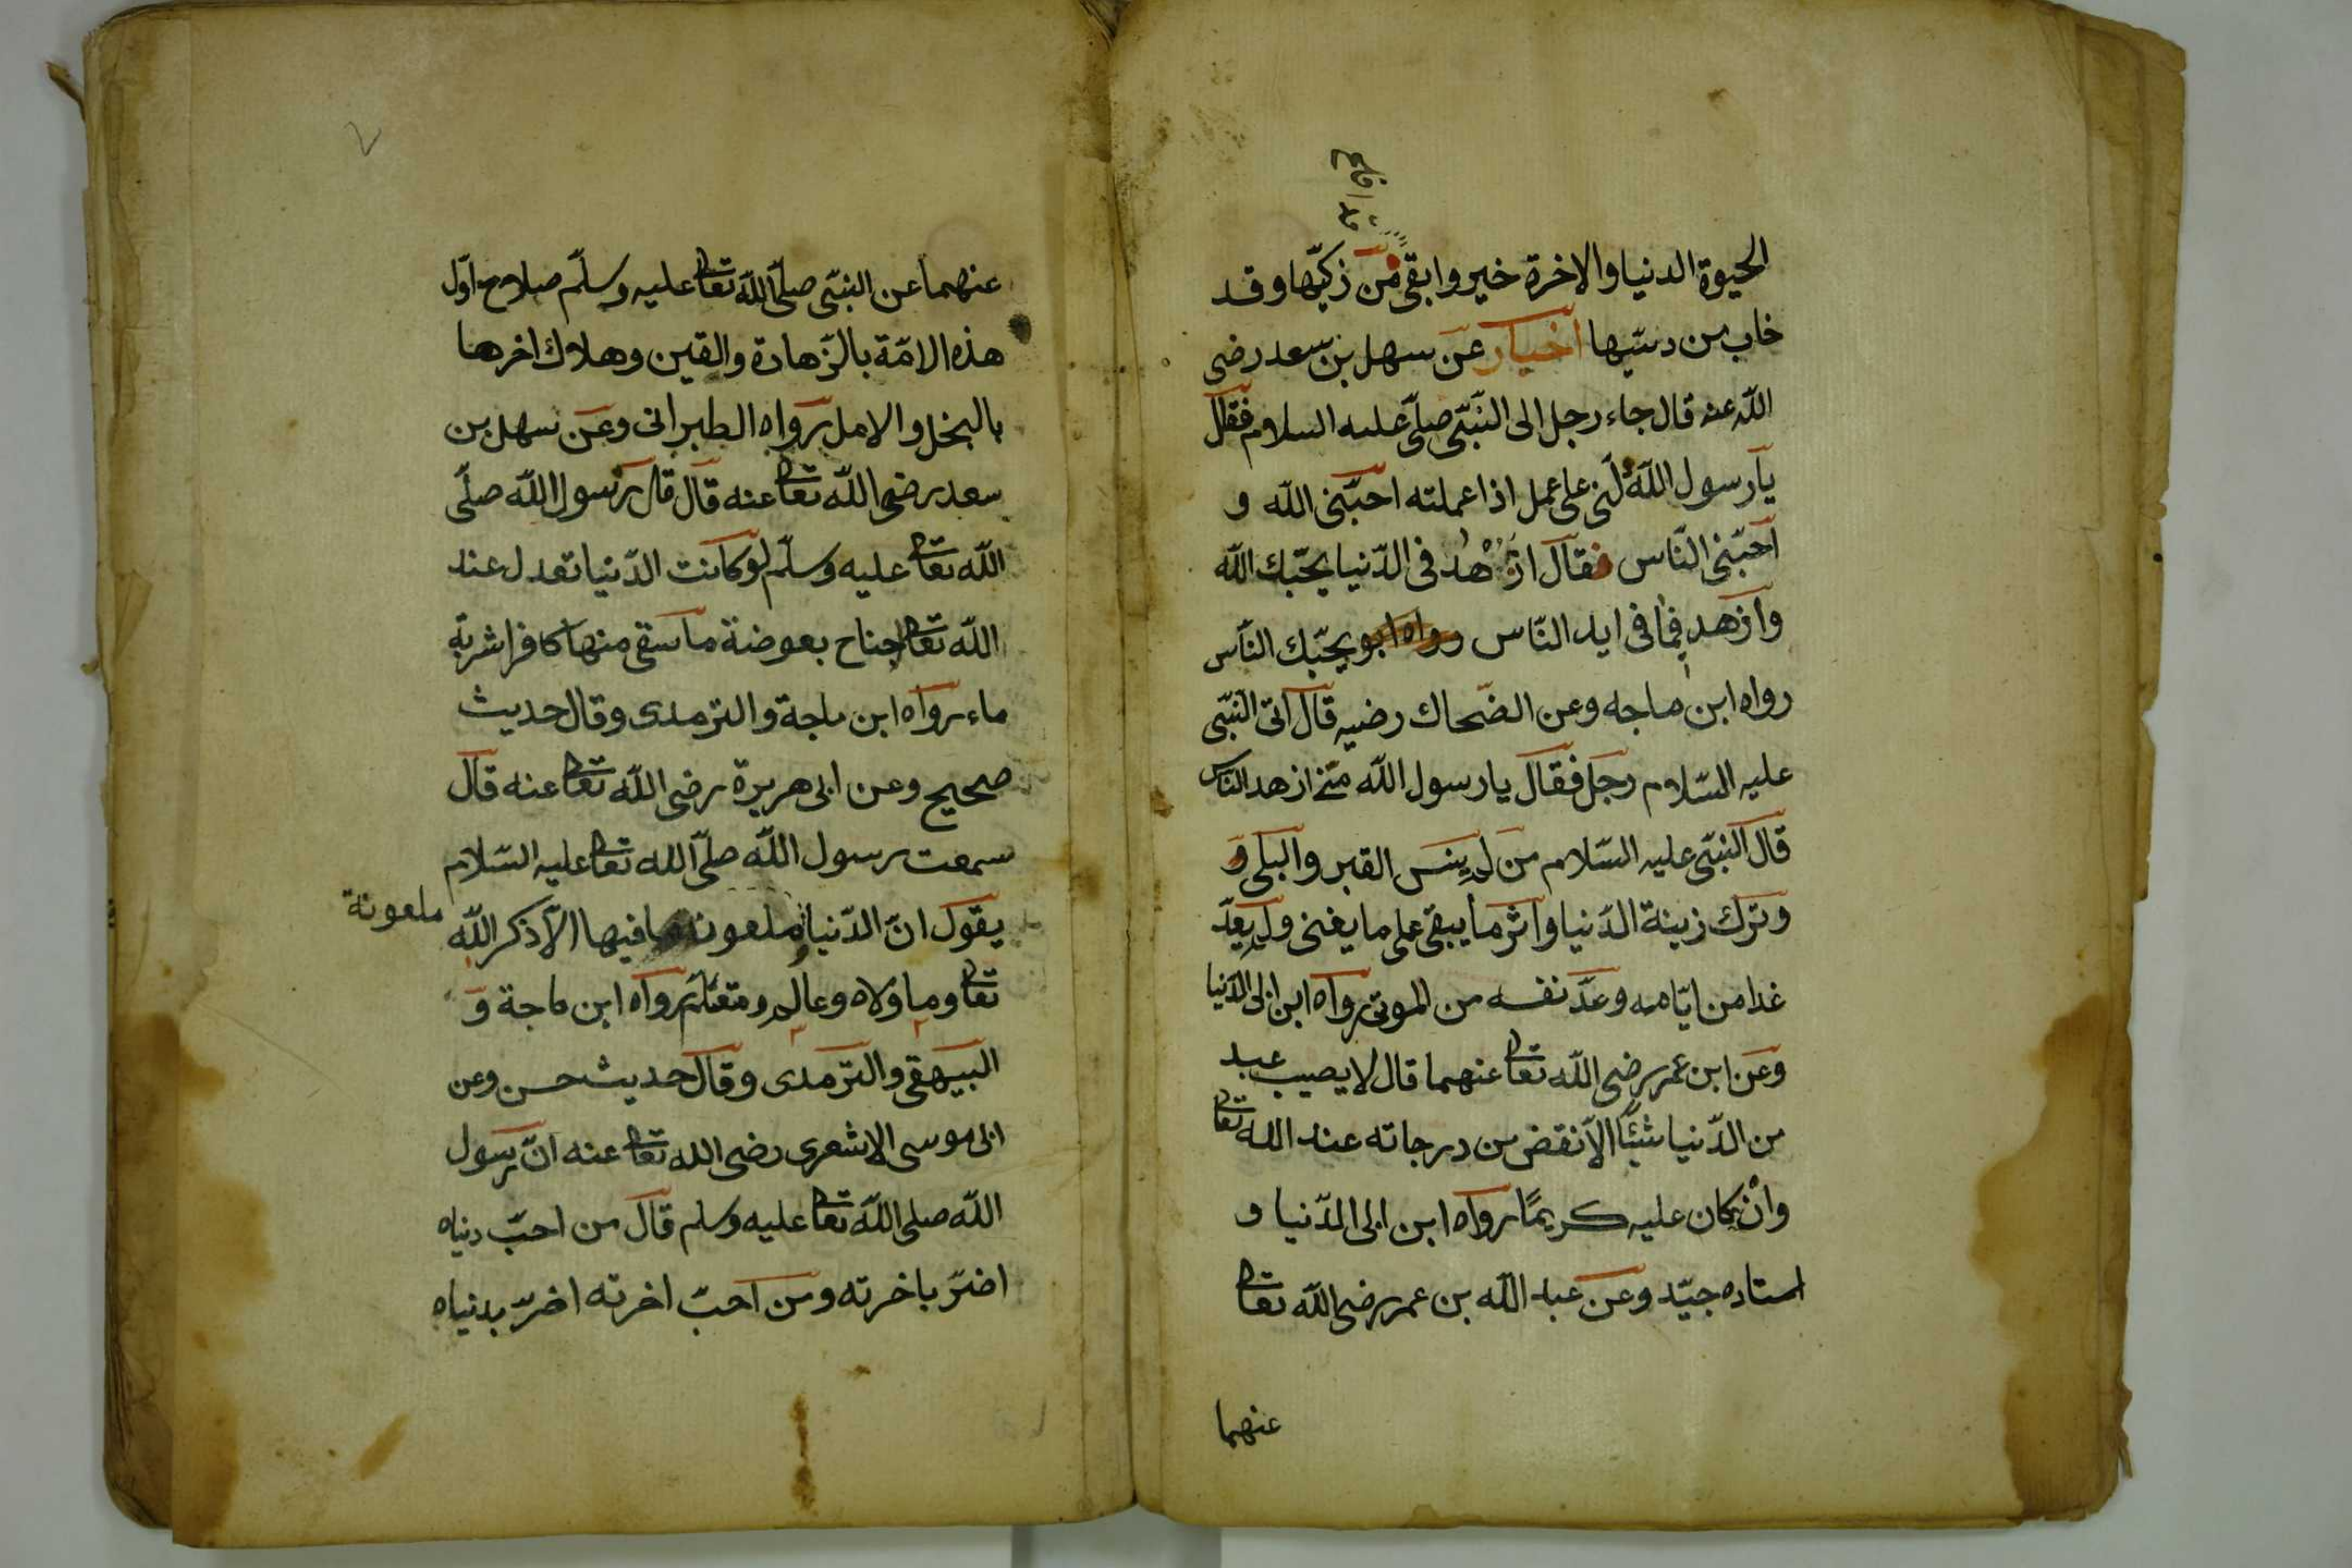 الحيوة الدنيا والاخرة خير وابقى من زكيّها وقد
خاب من دسّيها اخبار عن سهل بن سعد رضى
اللّه عنه قال جاء رجل الى النّبىّ صلّى عليه السلام فقال
يا رسول اللّه دلّنى على عمل اذا عملته احبّنى اللّه و
احبّنى النّاس فقال ازهد فى الدّنيا يحبّك اللّه
وازهد فيما فى ايد النّاس يحبّك النّاس
رواه ابن ماجه وعن الضّحاك رضيه قال اتى النّبىّ
عليه السّلام رجل فقال يا رسول اللّه من ازهد الناس
قال النّبىّ عليه السّلام من لم ينس القبر والبلى و
وترك زينة الدّنيا واثر ما يبقى على ما يفنى ولم يعدّ
غدا من ايّامه وعدّ نفسه من الموتى رواه ابن ابى الدّنيا
وعن ابن عمر رضى اللّه تعا عنهما قال لا يصيب عبد
من الدّنيا شيئًا الّا نقض من درجاته عند اللّه تعا
وان كان عليه كريمًا رواه ابن ابى الدّنيا و
اسناده جيّد وعن عبد اللّه بن عمر رضى اللّه تعا
عنهما
٧
عنهما عن النّبىّ صلّى اللّه تعا عليه وسلّم صلاح اوّل
هذه الامّة بالزّهادة والقين وهلاك اخرها
بالبخل والامل رواه الطبرانى وعن سهل بن
سعد رضى اللّه تعا عنه قال قال رسول اللّه صلّى
اللّه تعا عليه وسلّم لو كانت الدّنيا تعدل عند
اللّه تعا جناح بعوضة ما سقى منها كافرا شربة
ماء رواه ابن ماجة والترمدى وقال حديث
صحيح وعن ابى هريرة رضى اللّه تعا عنه قال
سمعت رسول اللّه صلّى اللّه تعا عليه السّلام
يقول انّ الدّنيا ملعونة ما فيها الّا ذكر اللّه
ملعونة
تعا وما والاه وعالم ومتعلّم رواه ابن ماجة و
البيهقى والترمدى وقال حديث حسن وعن
ابى موسى الاشعرى رضى اللّه تعا عنه انّ رسول
اللّه صلى اللّه تعا عليه وسلم قال من احبّ دنياه
اضرّ باخرته ومن احبّ اخرته اضرّ بدنياه